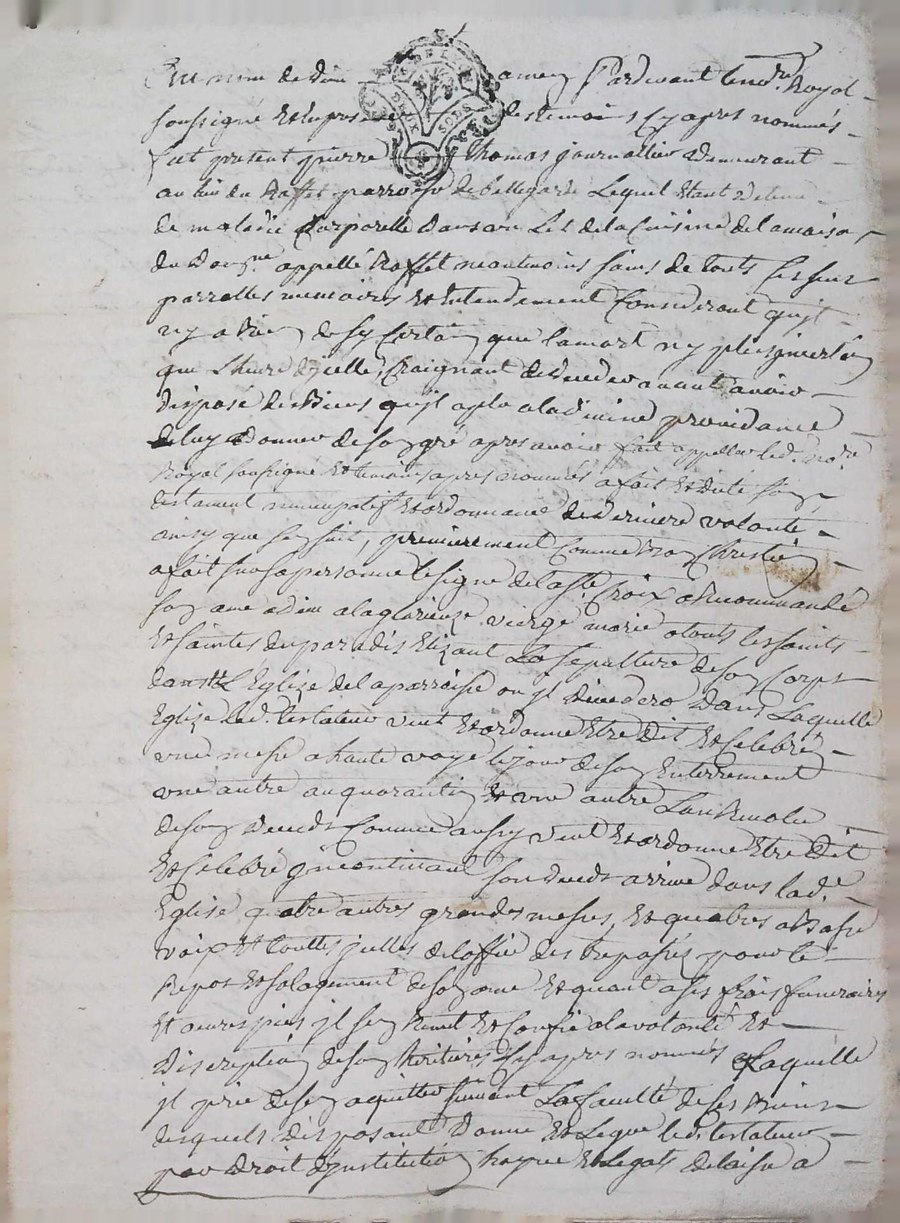 Au nom de dieu amen Pardevant le no.re Royal
soussigné et en pres des temoins cy apres nommés
fut present pierre thomas journallier demeurant
au lieu du Raffet parroisse de bellegarde Lequel etant detenu
de maladie Corporelle dans un Lit de la Cuisine de la maison
du Dom.ne appellé Raffet neantmoins sains de touts ses sens
parrolles memoires et Entendement Considerant quil
ny a Rien de sy Certain que la mort ny plus jncertain
que L'heure d'jcelle, Craignant de deceder avant avoir
disposé des Biens quil a plu a la divine providance
de luy donner de son gré apres avoir fait appeller led. no.re
Royal soussigné et temoins apres nommés a fait et dicté son
testament nuncupatif et ordonnance de derniere volonté
ainsy que sen suit, premierement Comme Bon Chrestien
a fait sur sa personne le signe de la S.te Croix a Recommandé
son ame a dieu a la glorieuze vierge marie a touts les saints
et saintes du paradis Elizant La sepulture de son Corps
dans L'Eglize de la parroisse ou jl decedera Dans Laquelle
Eglize led. testateur veut et ordonne Etre Dit et Celebré
une messe a haute voye le jour de son Enterrement
une autre au quarantin et une autre L'an Revolu
de son deceds Comme aussy veut et ordonne Etre Dit
et Celebré jncontinant son deceds arrivé dans lad.e
Eglize quatre autres grandes messes, et quatres a Basse
voix et touttes jcelles de l'office des trepassés pour le
Repos et solagement de son ame et quant a ses frais funeraires
et oeuvres pies jl sen Remet et Confie a la volonté et
Discreption de son heritiere Cy apres nommée Laquelle
jl prie de sen aquitter suivant La faculté de ses Biens
desquels disposant Donne et Legue led. testateur
par Droit d'jnstitution hoprie et Legats delaisse a